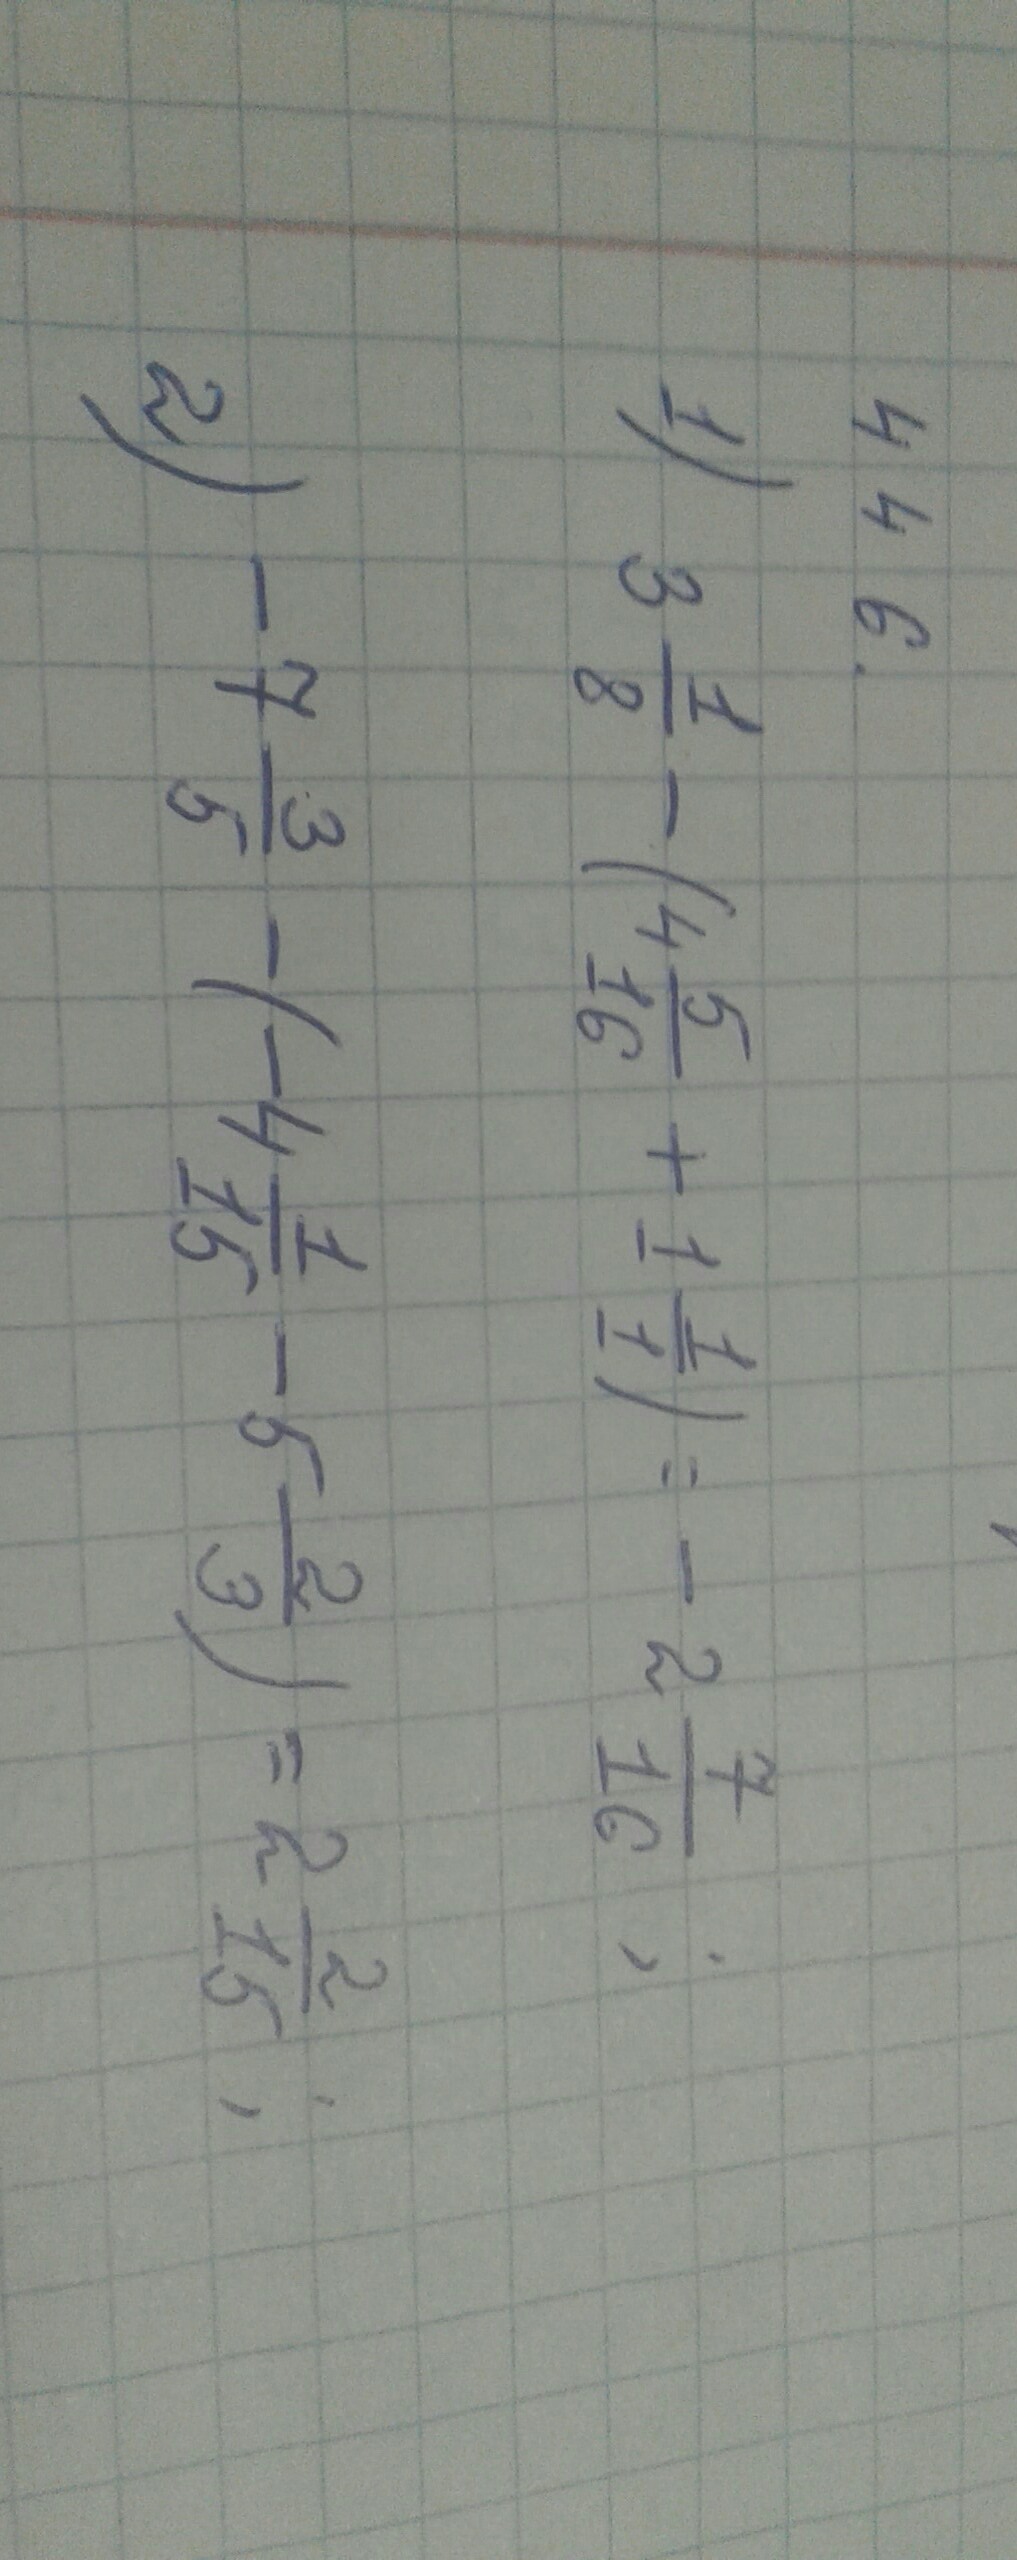 446.
1) 3 1/8 - (4 5/16 + 1 1/1) = - 2 7/16 ;
2) - 7 3/5 - (- 4 1/15 - 5 2/3) = 2 2/15 ;